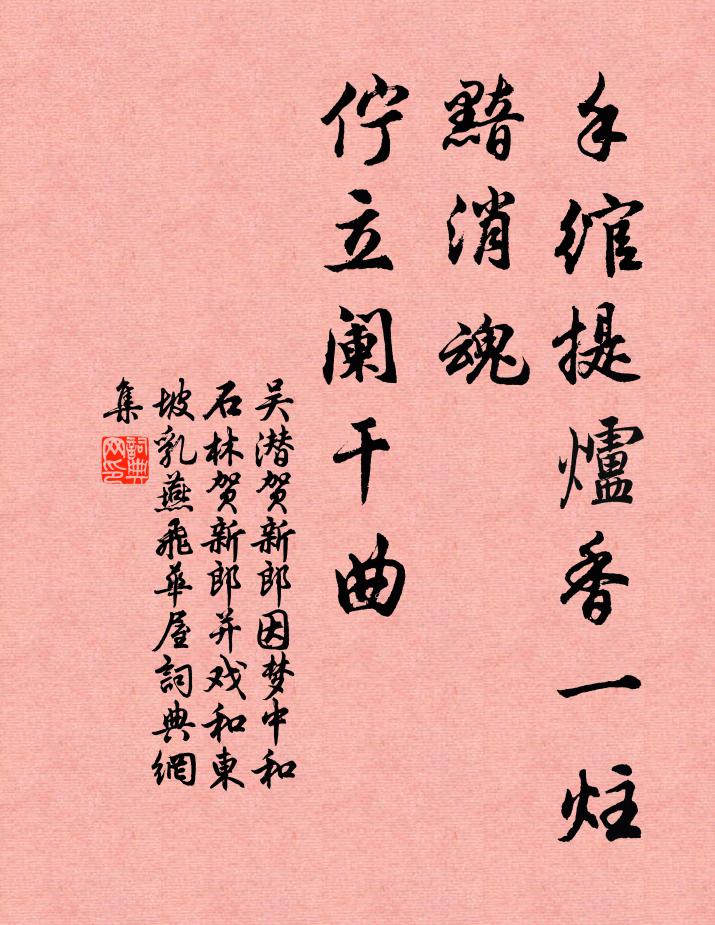 手绾提爐香一炷
黯消魂
佇立阑干曲
吴潜贺新郎因梦中和
石林贺新郎并戏和東
坡乳燕飛華屋詞典網
集
詞典
网印